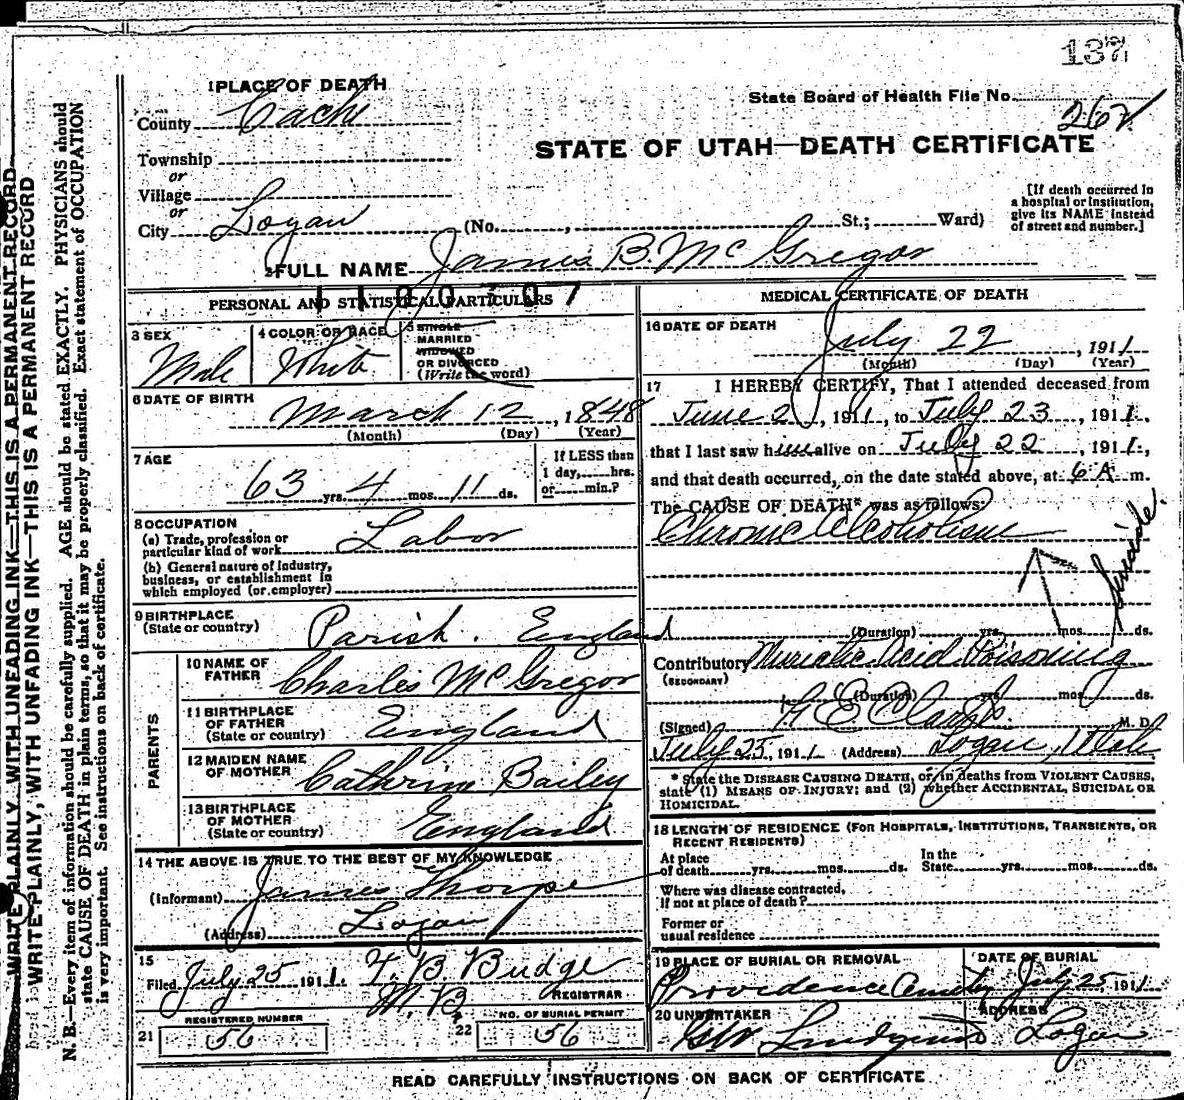 137
1 PLACE OF DEATH
County Cache
State Board of Health File No. 262
STATE OF UTAH—DEATH CERTIFICATE
Township
or
Village
or
City Logan (No. , St.; Ward)
[If death occurred in
a hospital or institution,
give its NAME instead
of street and number.]
2 FULL NAME James B. McGregor
PERSONAL AND STATISTICAL PARTICULARS
3 SEX
Male
4 COLOR OR RACE
White
5 SINGLE
MARRIED
WIDOWED
OR DIVORCED
(Write the word)
6 DATE OF BIRTH
March 12, 1848
(Month) (Day) (Year)
7 AGE
63 yrs. 4 mos. 11 ds.
If LESS than
1 day, hrs.
or min.?
8 OCCUPATION
(a) Trade, profession or
particular kind of work Labor
(b) General nature of industry,
business, or establishment in
which employed (or employer)
9 BIRTHPLACE
(State or country) Parish. England
PARENTS
10 NAME OF
FATHER Charles McGregor
11 BIRTHPLACE
OF FATHER
(State or country) England
12 MAIDEN NAME
OF MOTHER Cathrine Bailey
13 BIRTHPLACE
OF MOTHER
(State or country) England
14 THE ABOVE IS TRUE TO THE BEST OF MY KNOWLEDGE
(Informant) James Thorpe
(Address) Logan
15
Filed July 25 1911. T. B. Budge
M.D.
REGISTRAR
21 REGISTERED NUMBER
56
22 NO. OF BURIAL PERMIT
56
MEDICAL CERTIFICATE OF DEATH
16 DATE OF DEATH
July 22, 1911
(Month) (Day) (Year)
17 I HEREBY CERTIFY, That I attended deceased from
June 21, 1911, to July 23, 1911.,
that I last saw him alive on July 22, 1911.,
and that death occurred, on the date stated above, at 6 A m.
The CAUSE OF DEATH* was as follows:
Chronic Alcoholism
Suicide.
(Duration) yrs. mos. ds.
Contributory Muriatic Acid Poisoning
(SECONDARY)
(Duration) yrs. mos. ds.
(Signed) M. D.
July 25, 1911 (Address) Logan, Utah
* State the DISEASE CAUSING DEATH, or, in deaths from VIOLENT CAUSES,
state (1) MEANS OF INJURY; and (2) whether ACCIDENTAL, SUICIDAL OR
HOMICIDAL.
18 LENGTH OF RESIDENCE (FOR HOSPITALS, INSTITUTIONS, TRANSIENTS, OR
RECENT RESIDENTS)
At place
of death yrs. mos. ds.
In the
State yrs. mos. ds.
Where was disease contracted,
if not at place of death?
Former or
usual residence
19 PLACE OF BURIAL OR REMOVAL
Providence Cemetery
DATE OF BURIAL
July 25 1911
20 UNDERTAKER
Lindquist
ADDRESS
Logan
READ CAREFULLY INSTRUCTIONS ON BACK OF CERTIFICATE
WRITE PLAINLY, WITH UNFADING INK—THIS IS A PERMANENT RECORD
WRITE PLAINLY, WITH UNFADING INK—THIS IS A PERMANENT RECORD
N. B.—Every item of information should be carefully supplied. AGE should be stated EXACTLY. PHYSICIANS should
state CAUSE OF DEATH in plain terms, so that it may be properly classified. Exact statement of OCCUPATION
is very important. See instructions on back of certificate.